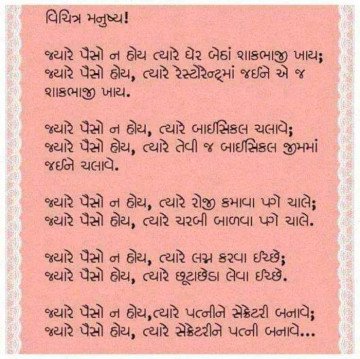 વિચિત્ર મનુષ્ય!
જ્યારે પૈસો ન હોય ત્યારે ઘેર બેઠાં શાકભાજી ખાય;
જ્યારે પૈસો હોય, ત્યારે રેસ્ટોરેન્ટ્માં જઈને એ જ
શાકભાજી ખાય.
જ્યારે પૈસો ન હોય, ત્યારે બાઈસિકલ ચલાવે;
જ્યારે પૈસો હોય, ત્યારે તેવી જ બાઈસિકલ જીમમાં
જઈને ચલાવે.
જ્યારે પૈસો ન હોય, ત્યારે રોજી કમાવા પગે ચાલે;
જ્યારે પૈસો હોય, ત્યારે ચરબી બાળવા પગે ચાલે.
જ્યારે પૈસો ન હોય, ત્યારે લગ્ન કરવા ઇચ્છે;
જ્યારે પૈસો હોય, ત્યારે છૂટાછેડા લેવા ઇચ્છે.
જ્યારે પૈસો ન હોય,ત્યારે પત્નીને સેક્રેટરી બનાવે;
જ્યારે પૈસો હોય, ત્યારે સેક્રેટરીને પત્ની બનાવે...